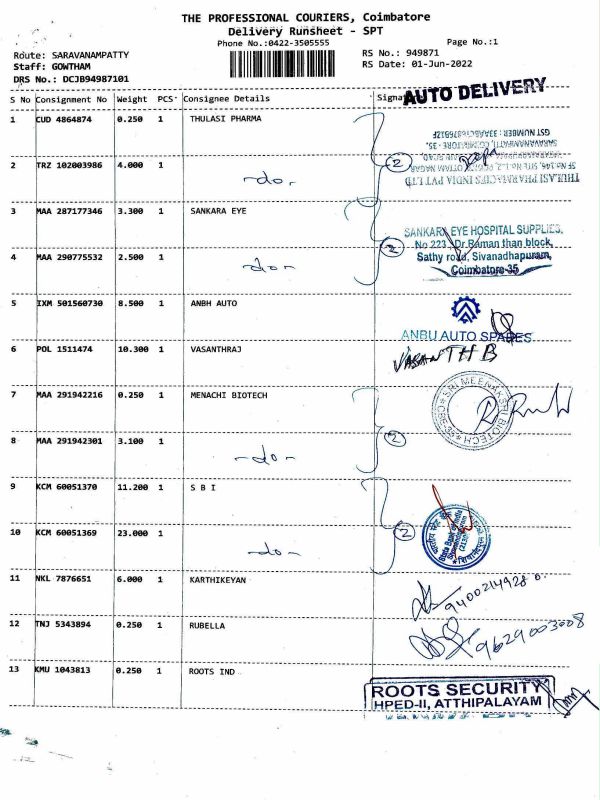 THE PROFESSIONAL COURIERS, Coimbatore
Delivery Runsheet - SPT
Phone No.:0422-3505555
Page No.:1
Route: SARAVANAMPATTY
RS No.: 949871
Staff: GOWTHAM
RS Date: 01-Jun-2022
DRS No.: DCJB94987101
AUTO DELIVERY
S No Consignment No Weight PCS Consignee Details Signat
1 CUD 4864874 0.250 1 THULASI PHARMA
GST NUMBER :
SARAVANAMPATTI, COIMBATORE -35.
2 TRZ 102003986 4.000 1 -do-
2
THULASI PHARMACIES INDIA PVT LTD
3 MAA 287177346 3.300 1 SANKARA EYE
SANKARA EYE HOSPITAL SUPPLIES,
No 223, Dr.Raman than block,
4 MAA 290775532 2.500 1 -do-
2
Sathy road, Sivanadhapuram,
Coimbatore-35
5 IXM 501560730 8.500 1 ANBH AUTO
ANBU AUTO SPARES
6 POL 1511474 10.300 1 VASANTHRAJ
VASANTH B
7 MAA 291942216 0.250 1 MENACHI BIOTECH
SRI MEENAKSHI BIOTECH
CBE-35
8 MAA 291942301 3.100 1 -do-
2
9 KCM 60051370 11.200 1 S B I
State Bank of India
10 KCM 60051369 23.000 1 -do-
2
11 NKL 7876651 6.000 1 KARTHIKEYAN
9400214928
12 TNJ 5343894 0.250 1 RUBELLA
9629003008
13 KMU 1043813 0.250 1 ROOTS IND
ROOTS SECURITY
HPED-II, ATTHIPALAYAM